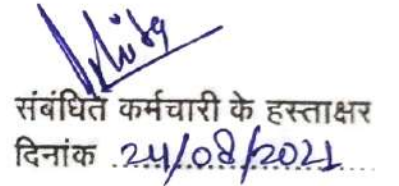 संबंधित कर्मचारी के हस्ताक्षर
दिनांक 24/08/2021